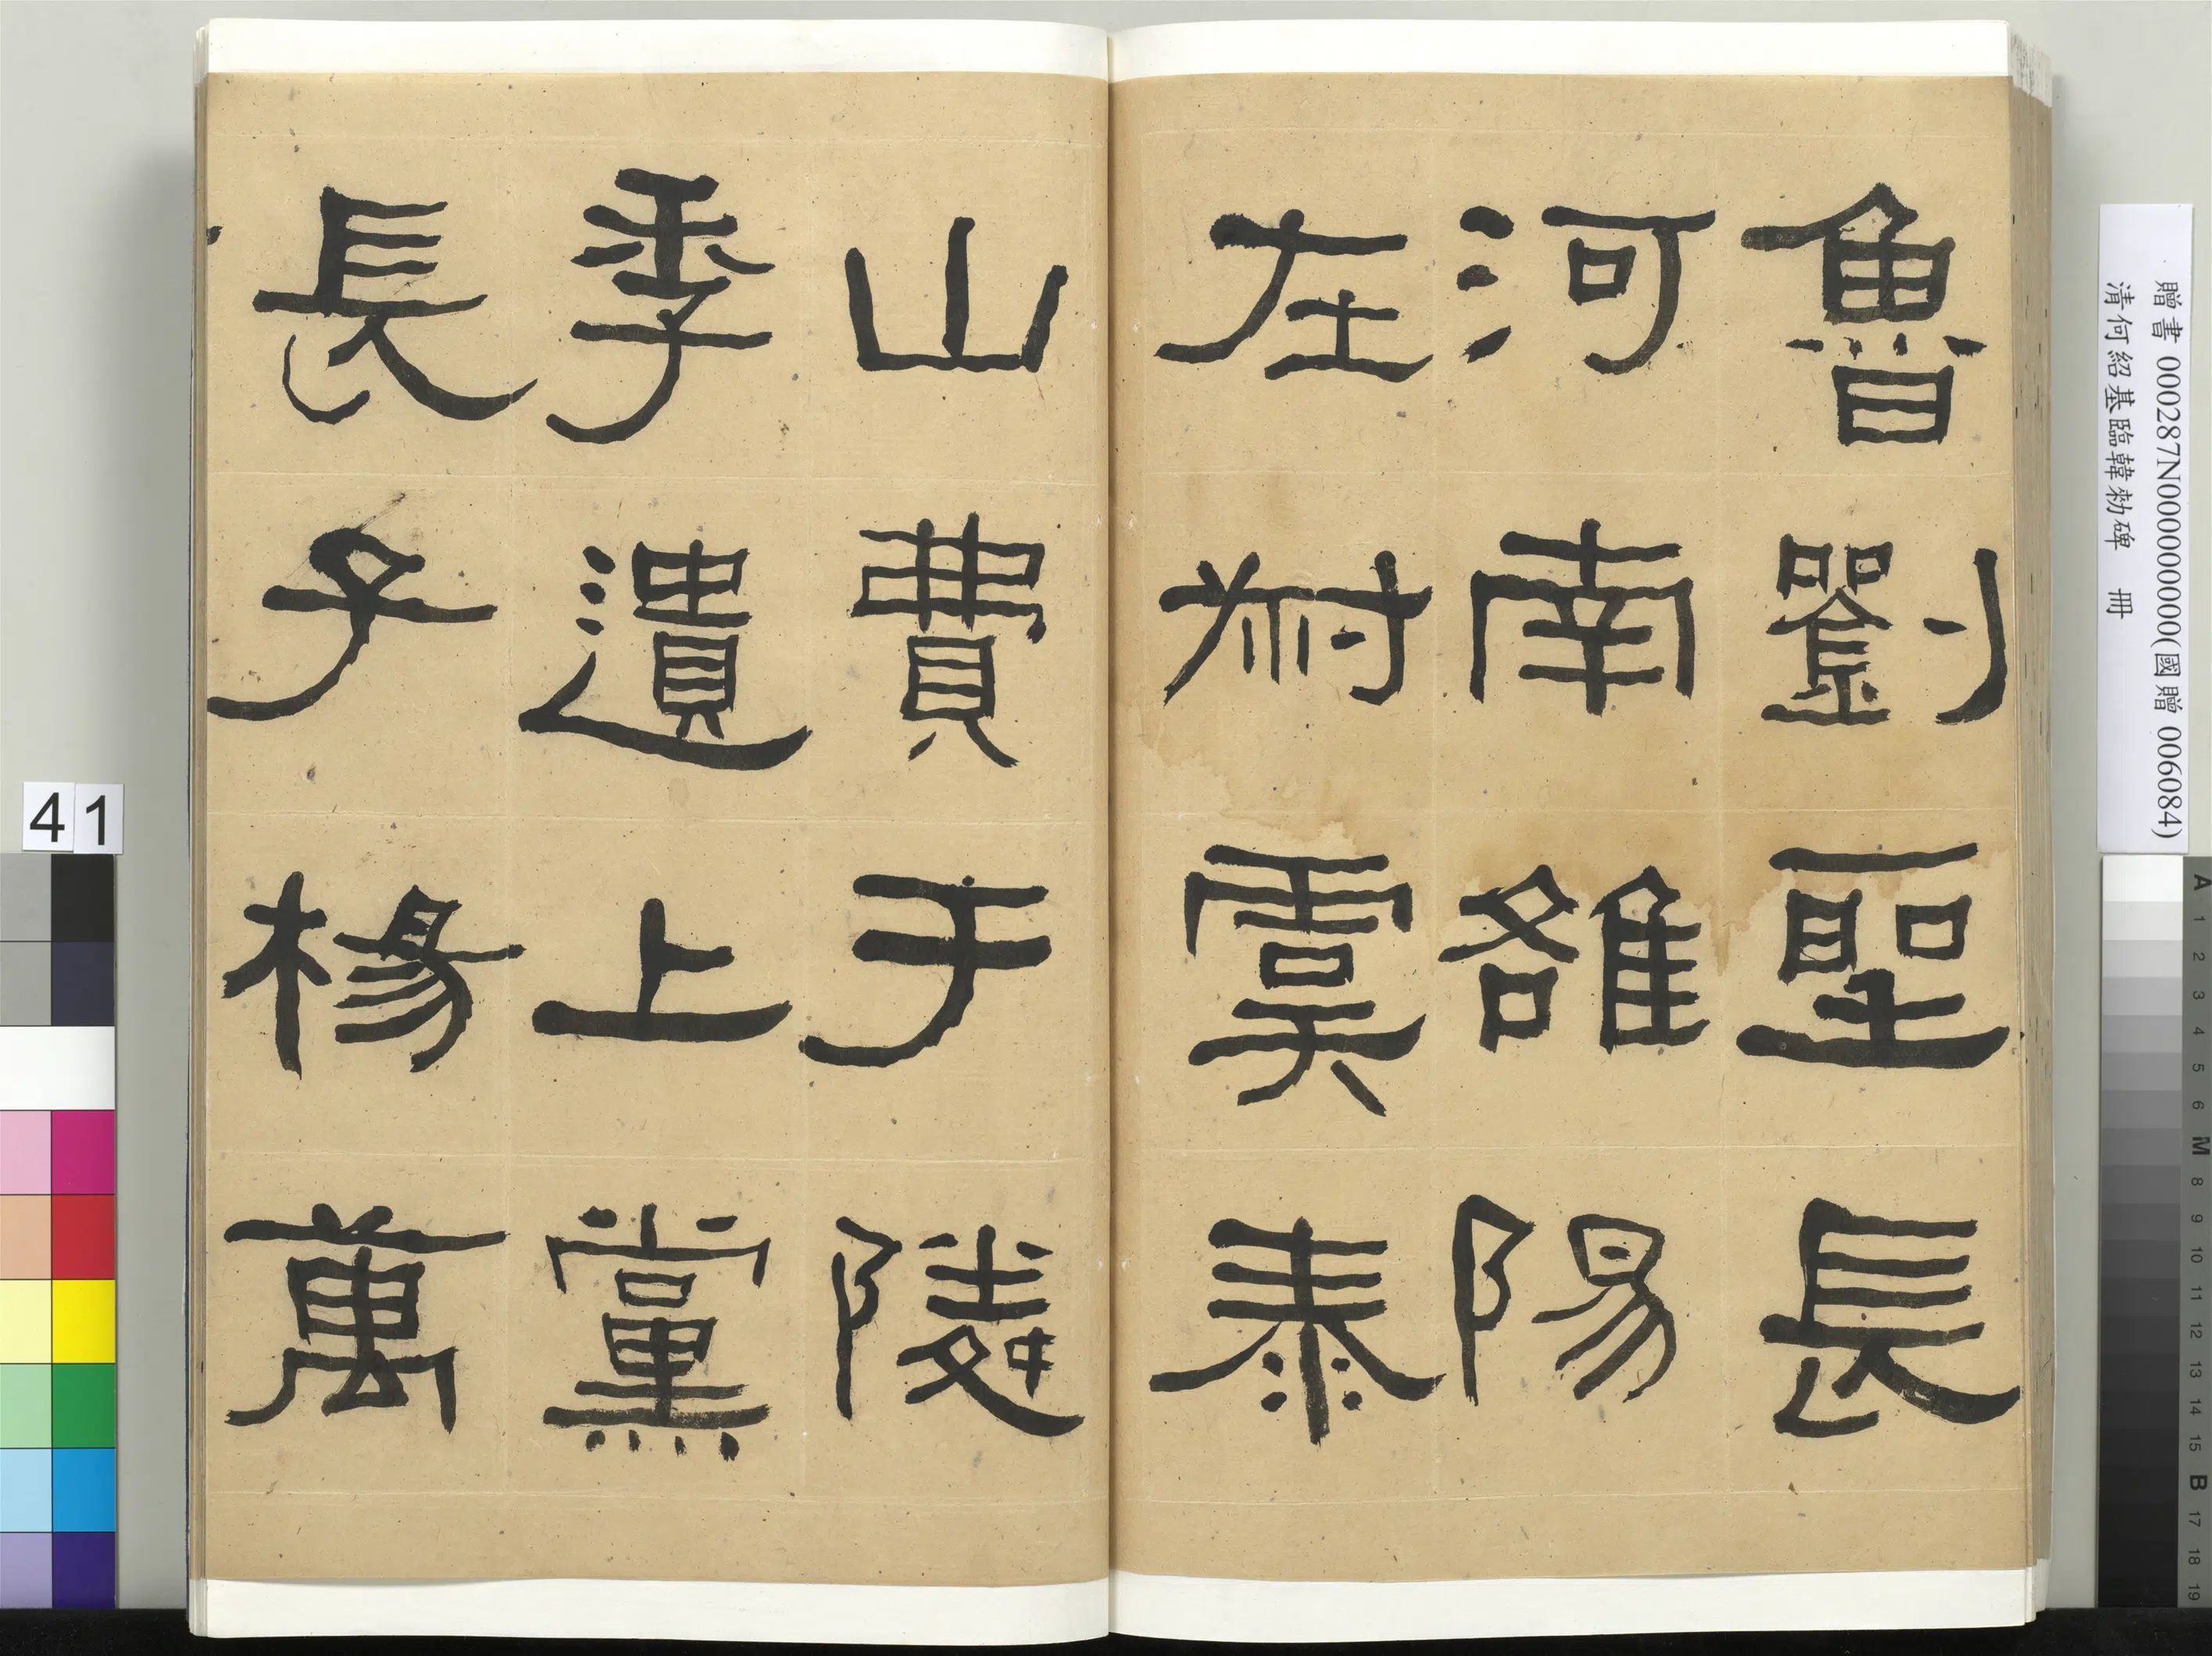 魯劉聖長
河南雒陽
左叔虞泰
山費于隣
季遺上黨
長子楊萬
贈書 000287N000000000(國贈 006084)
清何紹基臨韓勑碑 冊
41
A 1 2 3 4 5 6 M 8 9 10 11 12 13 14 15 B 17 18 19